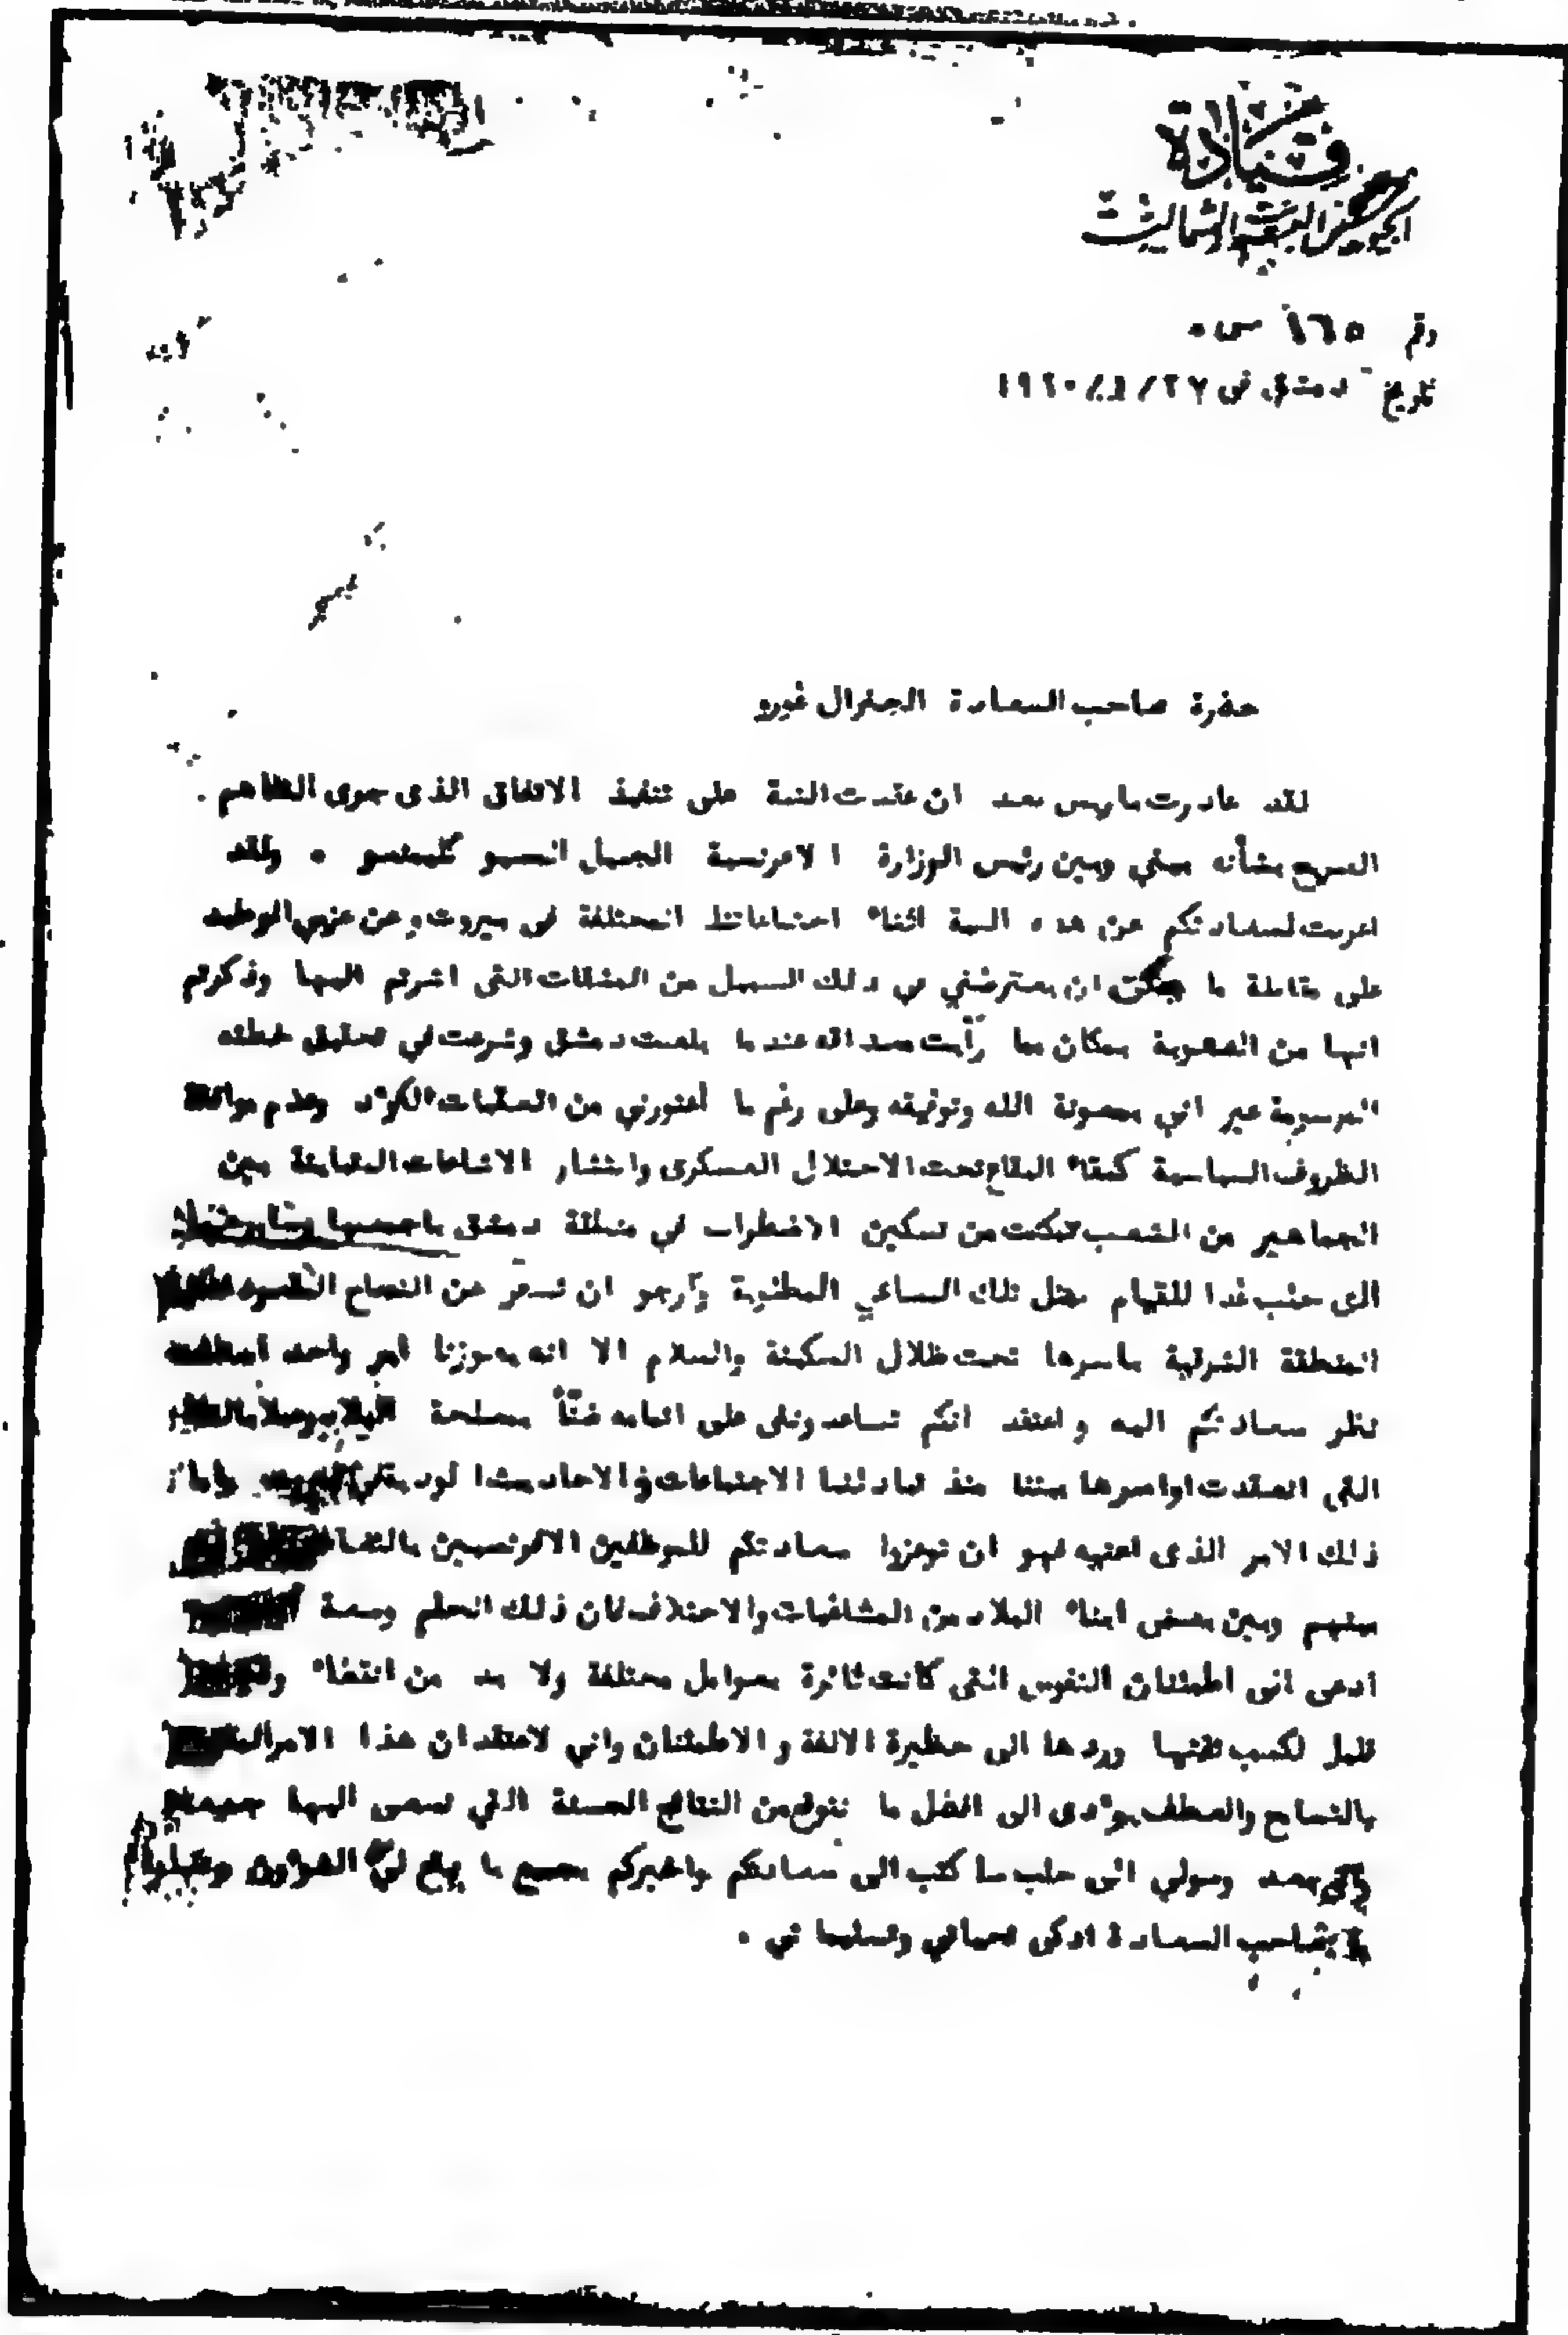 قيادة
الجيوش العربية الشمالية
رقم ١٦٥ س
تاريخ دمشق في ٢٧/١/١٩٢٠
حضرة صاحب السعادة الجنرال غورو
لقد غادرت باريس بعد ان عقدت النية على تنفيذ الاتفاق الذى جرى التفاهم
الصريح بشأنه بيني وبين رئيس الوزارة الافرنسية الجليل المسيو كليمنصو ٠ ولقد
اعربت لسعادتكم عن هذه النية اثناء اجتماعاتنا المختلفة في بيروت وعن عزمي الوطيد
على مقابلة ما يمكن ان يعترضني في ذلك السبيل من المشقات التي اشرتم اليها وذكرتم
انها من الصعوبة بمكان مما رأيت صدقه عندما بلغت دمشق وشرعت في تحقيق خطته
المرسومة غير اني بمعونة الله وتوفيقه وعلى رغم ما أعتورني من العقبات الكؤد وعدم موافقة
الظروف السياسية كبقاء البقاع تحت الاحتلال العسكرى وانتشار الاشاعات المتباينة بين
الجماهير من الشعب تمكنت من تسكين الاضطراب في منطقة دمشق باجمعها
الى حلب غدا للقيام بمثل تلك المساعي المطلوبة وأرجو ان تسفر عن النجاح
المنطقة الشرقية باسرها تحت ظلال السكينة والسلام الا انه يعوزنا امر واحد
نظر سعادتكم اليه واعتقد انكم تساعدونني على اتمامه ضنّاً بمصلحة
التي انعقدت اواصرها بيننا منذ تبادلنا الاجتماعات والاحاديث واما
ذلك الامر الذى اعنيه فهو ان توعزوا سعادتكم للموظفين الافرنسيين
بينهم وبين بعض ابناء البلاد من المشاغبات والاختلاف فان ذلك الحلم وسعة
ادعى الى اطمئنان النفوس التي كانت ثائرة بعوامل مختلفة ولا بد من انقضاء
قليل لكسب ثقتها وردها الى حظيرة الالفة والاطمئنان واني لاعتقد ان هذا الامر
بالتسامح والعطف يؤدى الى افضل ما نتوقع من النتائج الحسنة التي نسعى اليها جميعا
وصولي الى حلب ساكتب الى سعادتكم واخبركم بجميع ما يقع لي
صاحب السعادة ازكى تحياتي وتسليماتي ٠